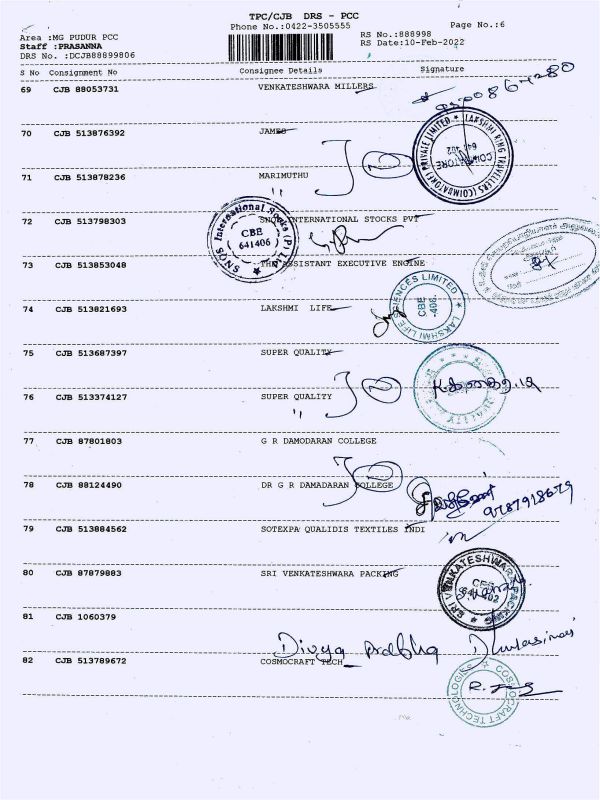 TPC/CJB DRS - PCC
Phone No.:0422-3505555
Page No.:6
Area :MG PUDUR PCC
RS No.:888998
Staff :PRASANNA
RS Date:10-Feb-2022
DRS No. :DCJB88899806
S No Consignment No Consignee Details Signature
69 CJB 88053731 VENKATESHWARA MILLERS
70 CJB 513876392 JAMES
LAKSHMI RING TRAVELLERS (COIMBATORE) PRIVATE LIMITED
COIMBATORE
71 CJB 513878236 MARIMUTHU
72 CJB 513798303 SNQS INTERNATIONAL STOCKS PVT
CBE
641406
73 CJB 513853048 THE ASSISTANT EXECUTIVE ENGINE
74 CJB 513821693 LAKSHMI LIFE
LAKSHMI LIFE SCIENCES LIMITED
CBE
75 CJB 513687397 SUPER QUALITY
76 CJB 513374127 SUPER QUALITY
77 CJB 87801803 G R DAMODARAN COLLEGE
78 CJB 88124490 DR G R DAMADARAN COLLEGE
9787918679
79 CJB 513884562 SOTEXPA QUALIDIS TEXTILES INDI
80 CJB 87879883 SRI VENKATESHWARA PACKING
SRI VENKATESHWARA PACKING
81 CJB 1060379
Divya Prabha
82 CJB 513789672 COSMOCRAFT TECH
COSMOCRAFT TECHNOLOGIES